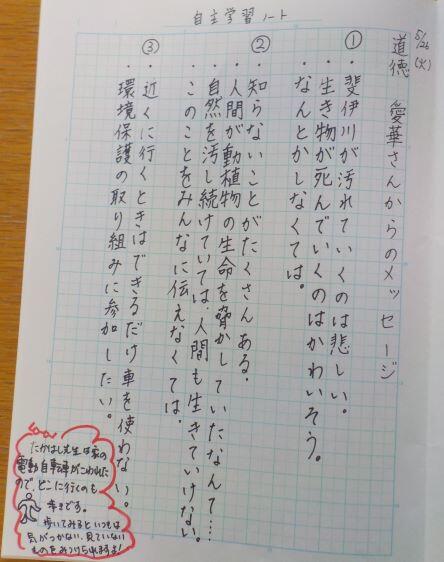 自主学習ノート
5/26(火)
道徳 愛華さんからのメッセージ
①
・斐伊川が汚れていくのは悲しい。
・生き物が死んでいくのはかわいそう。
・なんとかしなくては。
②
・知らないことがたくさんある。
・人間が動植物の生命を脅かしていたなんて…
・自然を汚し続けていては、人間も生きていけない。
・このことをみんなに伝えなくては。
③
・近くに行くときはできるだけ車を使わない。
・環境保護の取り組みに参加したい。
たかはし先生は家の
電動自転車がこわれた
のでどこに行くのも
歩きです。
歩いてみるといつもは
気がつかない、見ていない
ものをみつけられますよ!